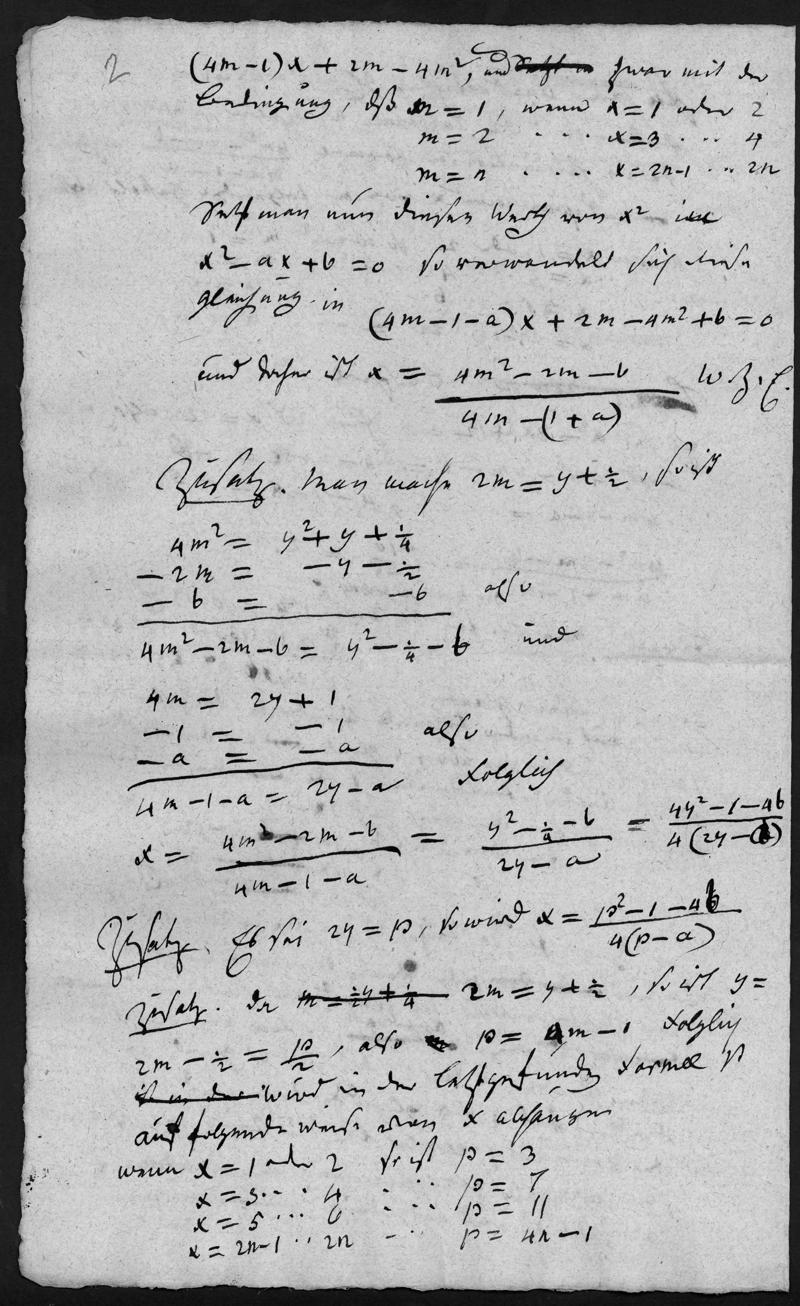 2
(4m-1)x + 2m - 4m², und zwar mit der
Bedingung, dß m = 1, wenn x = 1 oder 2
m = 2 . . . x = 3 . . . 4
m = n . . . . x = 2n-1 . . 2n
Setzt man nun diesen Werth von x² in
x² - ax + b = 0 so verwandelt sich diese
gleichung in
(4m - 1 - a)x + 2m - 4m² + b = 0
und daher ist x = (4m² - 2m - b)/(4m - (1 + a)) W.Z.E.
Zusatz. Man mache 2m = y + ½, so ist
4m² = y² + y + ¼
- 2m = - y - ½
- b = - b also
4m² - 2m - b = y² - ¼ - b und
4m = 2y + 1
- 1 = - 1
- a = - a also
4m - 1 - a = 2y - a folglich
x = (4m² - 2m - b)/(4m - 1 - a) = (y² - ¼ - b)/(2y - a) = (4y² - 1 - 4b)/(4(2y - a))
Zusatz. Es sei 2y = p, so wird x = (p² - 1 - 4b)/(4(p - a))
Zusatz. da 2m = y + ½, so ist y =
2m - ½ = p/2, also p = 4m - 1 folglich
wird in der letztgefunden formel p
auf folgende weise von x abhängen
wenn x = 1 oder 2 so ist p = 3
x = 3 . . . 4 . . . p = 7
x = 5 . . . 6 . . . p = 11
x = 2n-1 . . 2n . . p = 4n - 1